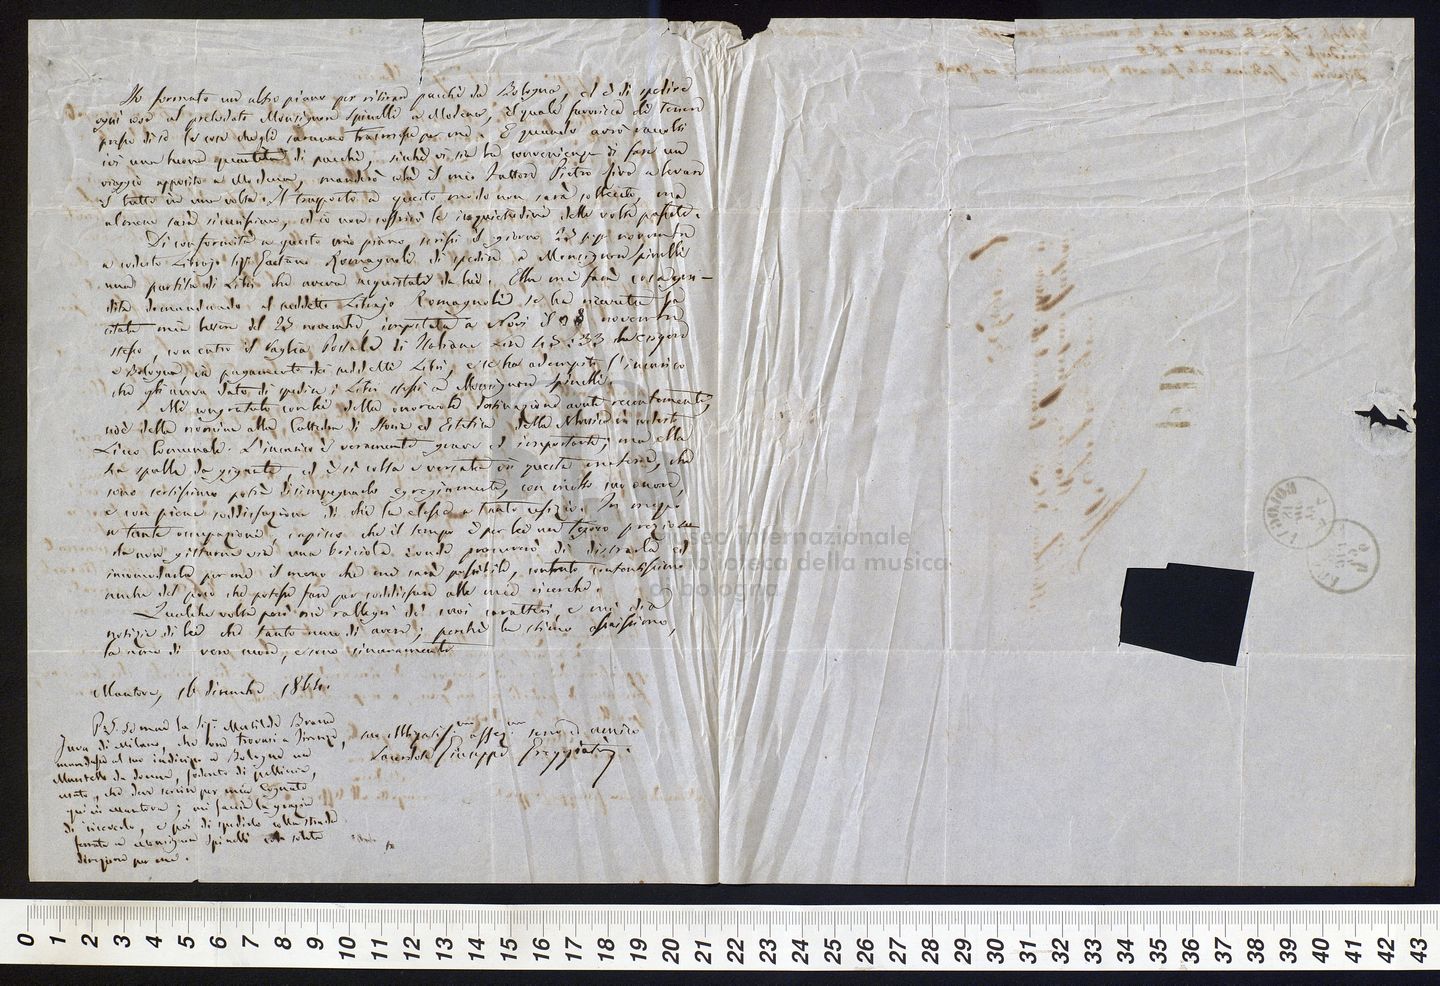 Ho formato un altro piano per ritirar pacchi da Bologna, ed è di spedire
ogni cosa al prelodato Monsignore Spinelli a Modena, il quale favorisca di tenere
presso di sè le cose che gli saranno trasmesse per me. E quando avrò raccolti
ivi una buona quantità di pacchi, sicchè vi sia la convenienza di fare un
viaggio apposito a Modena, manderò colà il mio Fattore Pietro a levare
il tutto in una volta. Il trasporto a questo modo non sarà sollecito, ma
almeno sarà sicurissimo, ed io non soffrirò le inquietudini delle volte passate.
Di conformità a questo mio piano, scrissi il giorno 23 novembre
a codesto Librajo Sigr Gaetano Romagnoli di spedire a Monsignor Spinelli
una partita di Libri che aveva acquistati da lui. Ella mi farà cosa gra-
dita domandando al suddetto Librajo Romagnoli se ha ricevuta la
citata mia lettera del 23 novembre, impostata a Novi il 28 novembre
stesso, con entro il Vaglia Postale di Italiane Lire 45:33 da esigere
a Bologna, in pagamento dei suddetti Libri, e se ha adempito l'incarico
che gli aveva dato di spedire i Libri stessi a Monsignor Spinelli.
Mi congratulo con lei della onorevole destinazione avuta recentemente,
cioè della nomina alla Cattedra di Storia ed Estetica della Musica in codesto
Liceo Comunale. L'incarico è veramente grave ed importante; ma ella
ha spalle da gigante, ed è sì colta e versata in questa materia, che
sono certissimo potrà disimpegnarlo egregiamente, con molto suo onore,
e con piena soddisfazione di chi la elesse a tanto uffizio. In mezzo
a tante occupazioni, capisco che il tempo è per lei un tesoro prezioso
da non gittarne via una briciola, onde procurerò di distrarla ed
incomodarla per me il meno che mi sarà possibile, contento contentissimo
anche del poco che potesse fare per soddisfare alle mie ricerche.
Qualche volta però mi rallegri dei suoi caratteri, e mi dia
notizie di lei che tanto amo di avere; perchè la stimo assaissimo,
la amo di vero cuore, e sono sinceramente
Mantova, 16 dicembre 1864.
suo Obbligatissimo affezmo servo ed amico
Sacerdote Giuseppe Greggiati.
P.S. Se mai la Sigra Matilde Branca
Juva di Milano, che ora trovasi a Firenze,
mandasse al suo indirizzo a Bologna un
Mantello da donna, foderato di pelliccia,
usato, che deve servire per mia Cognata
qui in Mantova; mi faccia la grazia
di riceverlo, e poi di spedirlo colla strada
ferrata a Monsignor Spinelli colla solita
direzione per me.
P.D
BOLOGNA
museo internazionale
e biblioteca della musica
di bologna
0 1 2 3 4 5 6 7 8 9 10 11 12 13 14 15 16 17 18 19 20 21 22 23 24 25 26 27 28 29 30 31 32 33 34 35 36 37 38 39 40 41 42 43